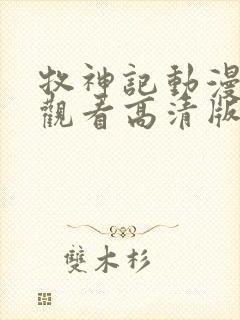 牧神記動漫
觀看高清版
雙木杉